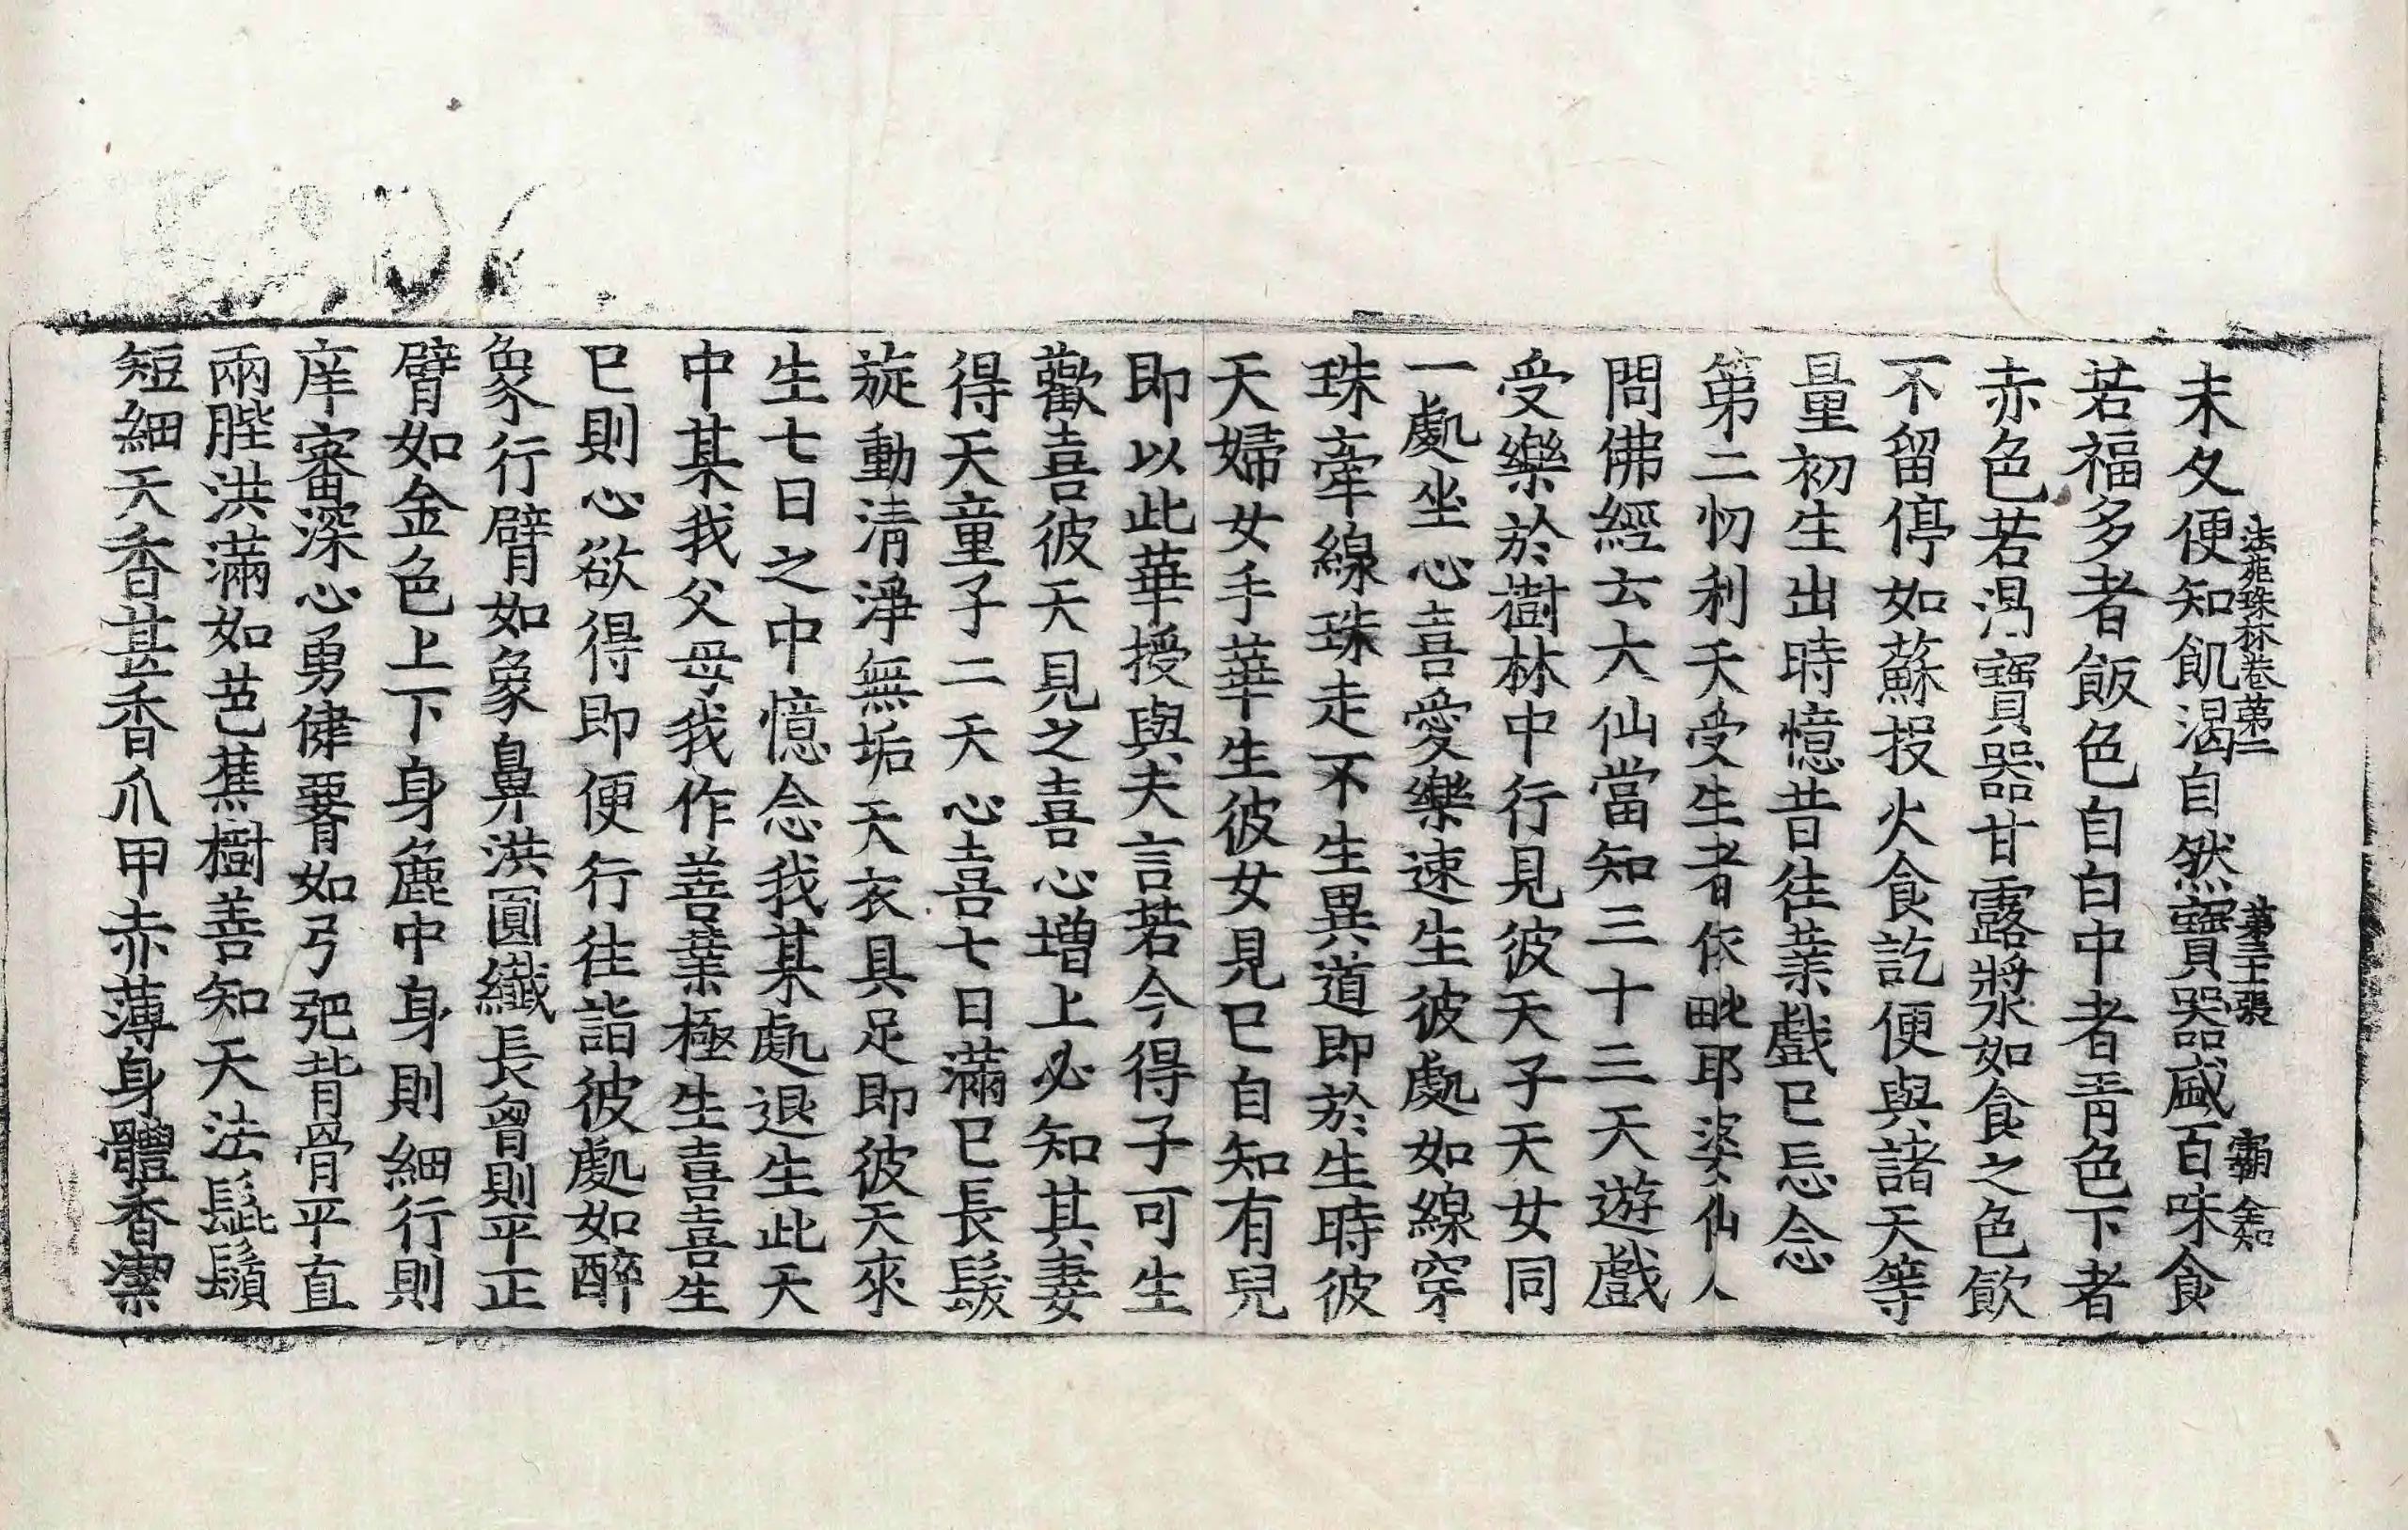 法苑珠林卷第二 第三十張 霸 念知
未久便知飢渴自然寶器盛百味食
若福多者飯色自白中者青色下者
赤色若渴寶器甘露將水如食之色飲
不留停如蘇投火食訖便與諸天等
量初生出時憶昔往業戲已忘念
第二忉利天受生者依毗耶娑仙人
問佛經云大仙當知三十三天遊戲
受樂於樹林中行見彼天子天女同
一處坐心喜愛樂速生彼處如線穿
珠牽線珠走不生異道即於生時彼
天婦女手華生彼女見已自知有兒
即以此華授與夫言若今得子可生
歡喜彼天見之喜心增上必知其妻
得天童子二天心喜七日滿已長髮
旋動清淨無垢天衣具足即彼天來
生七日之中憶念我某處退生此天
中某我父母我作善業極生喜喜生
已則心欲得即便行往詣彼處如醉
象行臂如象鼻洪圓纖長𦙄則平正
臂如金色上下身麁中身則細行則
庠審深心勇健𦝫如弓弝背骨平直
兩䏶洪滿如芭蕉樹善知天法髭鬚
短細天香甚香爪甲赤薄身體香潔